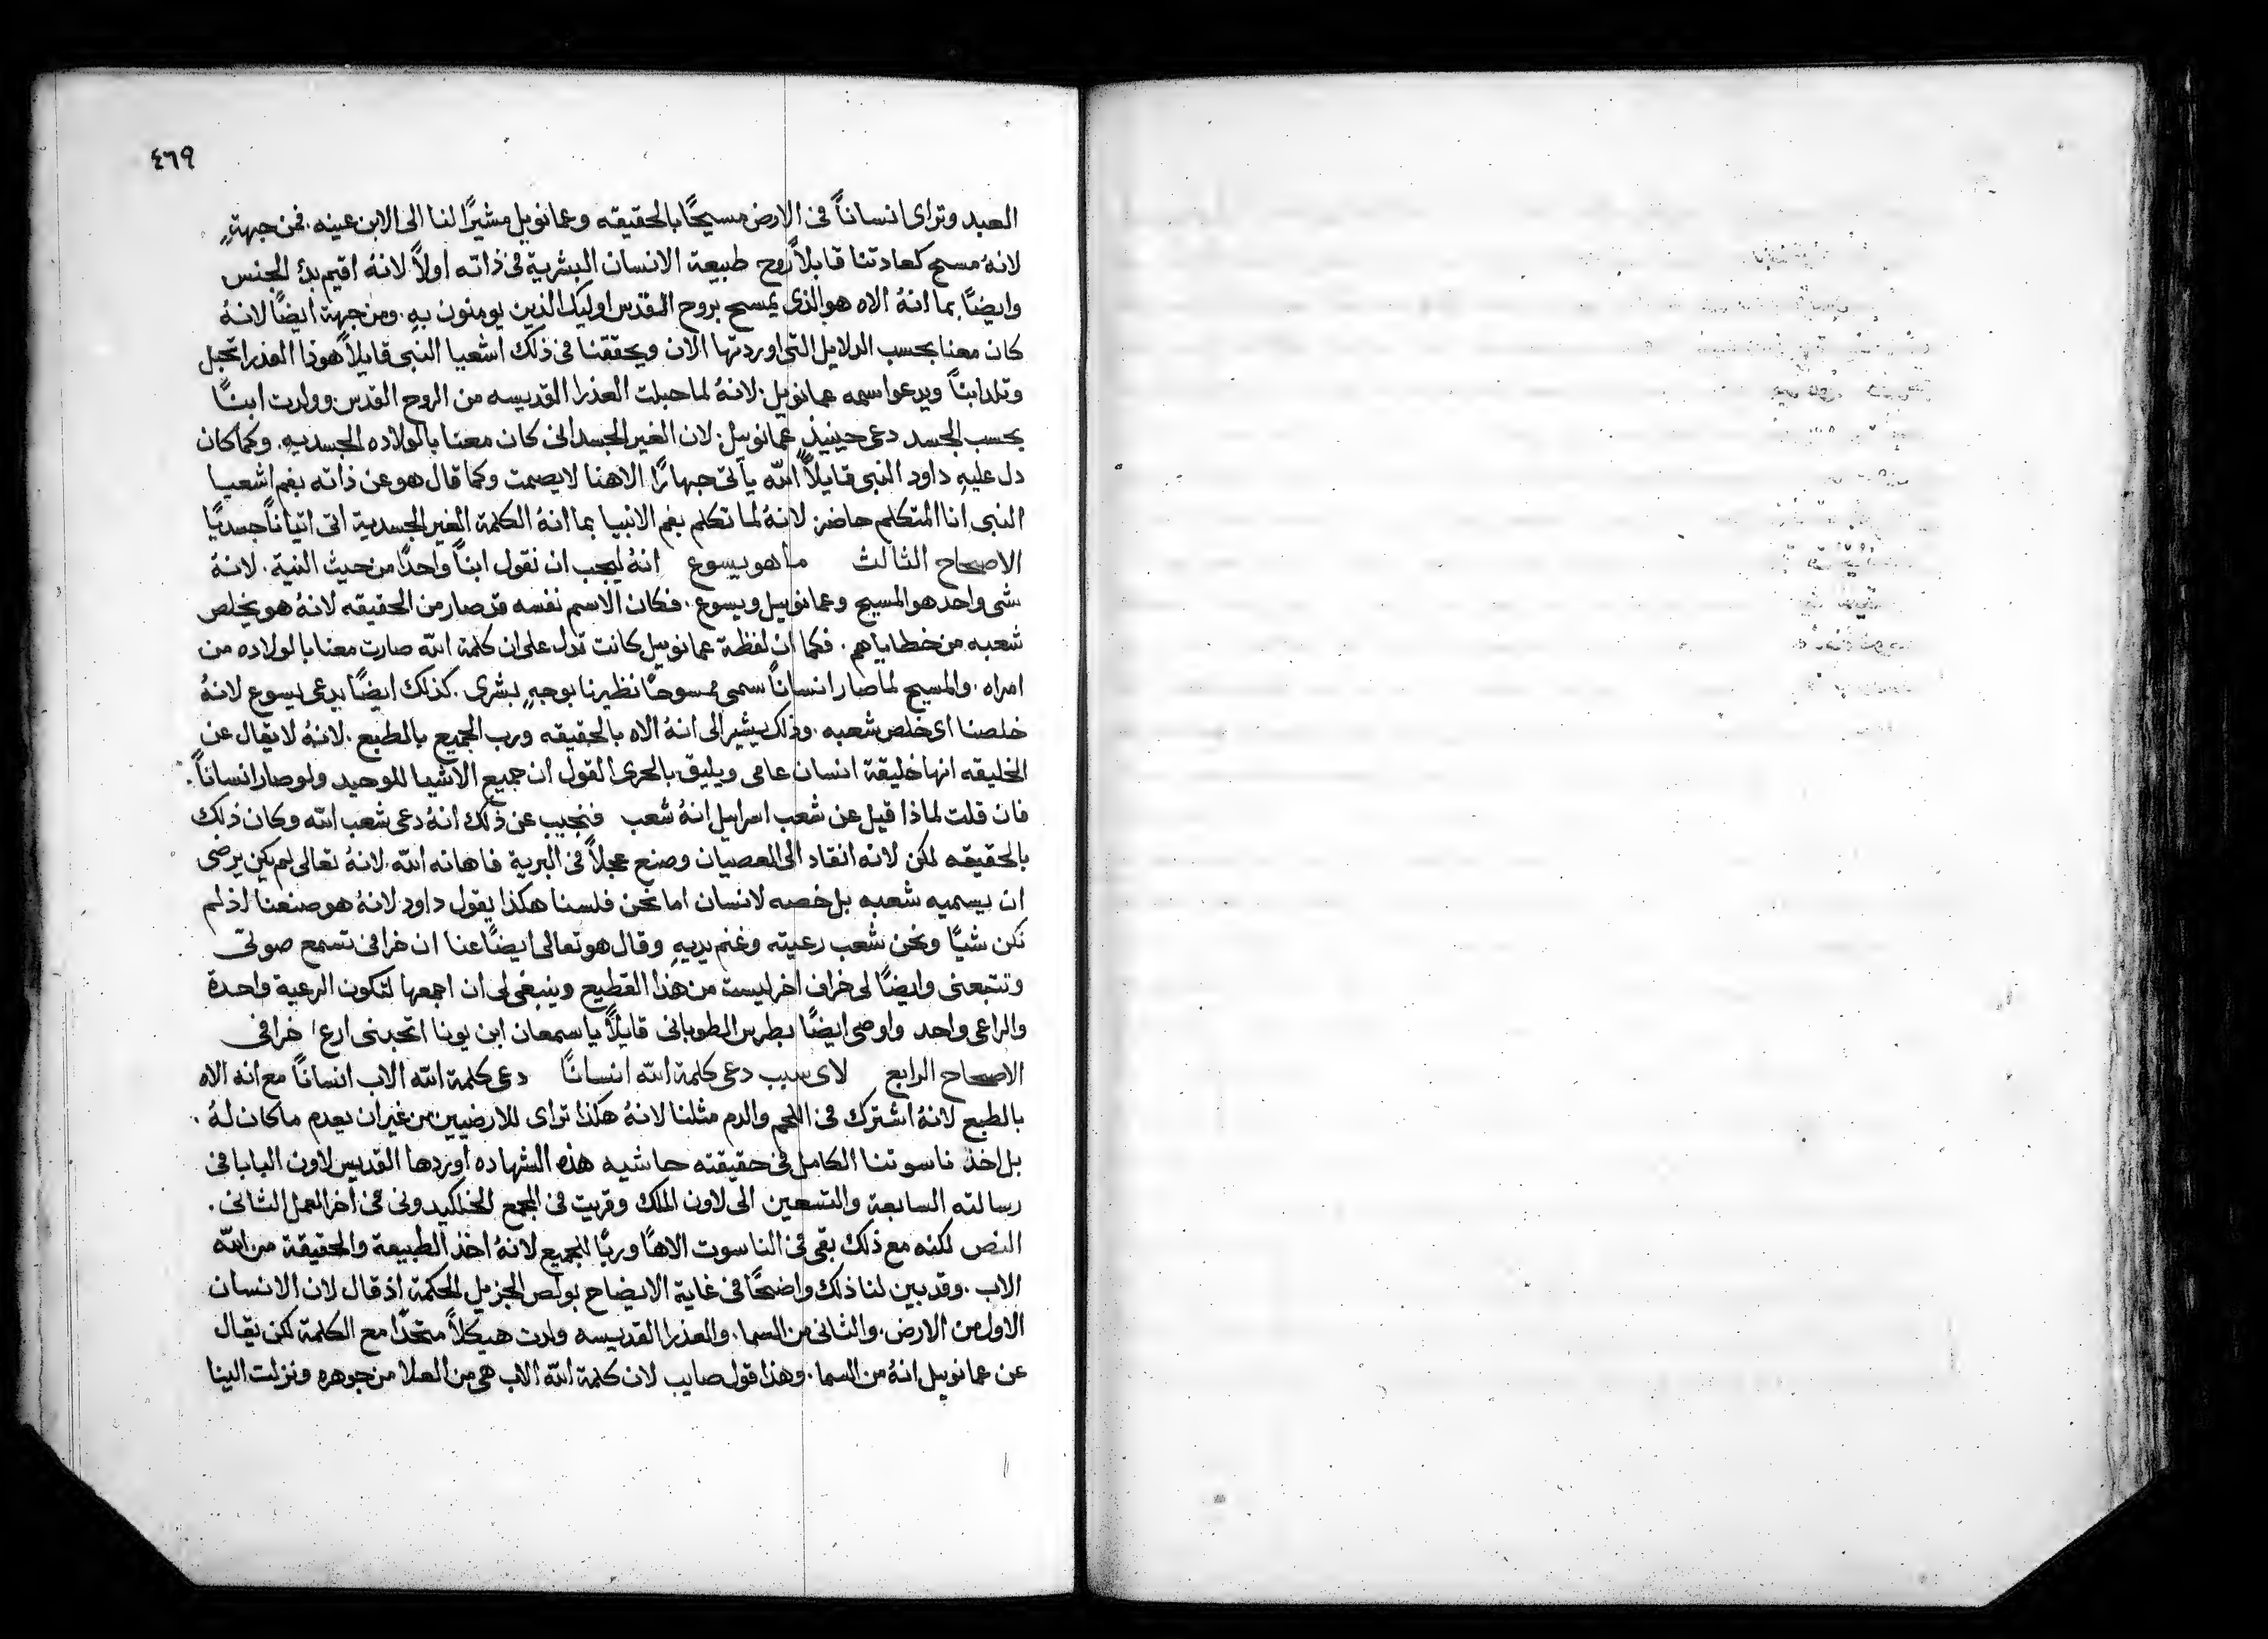 ٤٦٩
العبد وتراى انساناً فى الارض مسيحًا بالحقيقه وعمانويل مشيرًا لنا الى الابن عينه. فمن جهةٍ
لانهُ مسح كعادتنا قابلاً روح طبيعة الانسان البشرية فى ذاته اولاً لانهُ اقيم بدُ الجنس
وايضًا بما انهُ الاه هو الذى يمسح بروح القدس اوليك الذين يومنون بهِ. ومن جهة ايضًا لانهُ
كان معنا بحسب الدلايل التى اوردتها الان ويحققنا فى ذلك اشعيا النبى قايلاً هوذا العذرا تحبل
وتلد ابناً ويدعوا اسمه عمانويل. لانهُ لما حبلت العذرا القديسه من الروح القدس وولدت ابنًا
بحسب الجسد دعى حينيذٍ عمانوييل. لان الغير الجسدانى كان معنا بالولاده الجسديه. وكما كان
دل عليهِ داود النبى قايلاً الله يأتى جهارًا الاهنا لا يصمت وكما قال هو عن ذاته بفم اشعيا
النبى انا المتكلم حاضر لانهُ لما تكلم بفم الانبيا بما انهُ الكلمة الغير الجسدية اتى اتياناً جسديًا
الاصحاح الثالث ما هو يسوع انهُ ليجب ان نقول ابناً واحدًا من حيث النية. لانهُ
شى واحد هو المسيح وعمانوييل ويسوع. فكان الاسم نفسه قد صار من الحقيقه لانهُ هو يخلص
شعبه من خطاياهم. فكما ان لفظة عمانوييل كانت تدل على ان كلمة الله صارت معنا بالولاده من
امراه. والمسيح لما صار انساناً سمى ممسوحًا نظيرنا بوجهٍ بشرى. كذلك ايضًا يدعى يسوع لانهُ
خلصنا اى خلص شعبه. وذلك يشير الى انهُ الاه بالحقيقه ورب الجميع بالطبع. لانهُ لا يقال عن
الخليقه انها خليقة انسان عامى ويليق بالحرى القول ان جميع الاشيا للوحيد ولو صار انساناً.
فان قلت لماذا قيل عن شعب اسراييل انهُ شعب فنجيب عن ذلك انهُ دعى شعب الله وكان ذلك
بالحقيقه لكن لانه انقاد الى العصيان وصنع عجلاً فى البرية فاهانه الله لانهُ تعالى لم يكن يرضى
ان يسميه شعبه بل خصه لانسان اما نحن فلسنا هكذا يقول داود لانهُ هو صنعنا اذ لم
نكن شيًا ونحن شعب رعيته وغنم يديهِ وقال هو تعالى ايضًا عنا ان خرافى تسمع صوتى
وتتبعنى وايضًا لى خراف اخر ليست من هذا القطيع وينبغى لى ان اجمعها لتكون الرعية واحدة
والراعى واحد واوصى ايضًا بطرس الطوبانى قايلاً يا سمعان ابن يونا اتحبنى ارع خرافى
الاصحاح الرابع لاى سبب دعى كلمة الله انسانًا دعى كلمة الله الاب انساناً مع انه الاه
بالطبع لانهُ اشترك فى اللحم والدم مثلنا لانهُ هكذا تراى للارضيين من غير ان يعدم ما كان لهُ.
بل اخذ ناسوتنا الكامل فى حقيقته حاشيه هذه الشهاده اوردها القديس لاون البابا فى
رسالته السابعة والتسعين الى لاون الملك وقريت فى المجمع الخلكيدونى فى اخر العمل الثانى.
النص لكنه مع ذلك بقى فى الناسوت الاهًا وربًا للجميع لانهُ اخذ الطبيعة والحقيقة من الله
الاب. وقد بين لنا ذلك واضحًا فى غاية الايضاح بولص الجزيل الحكمة اذ قال لان الانسان
الاول من الارض. والثانى من السما. والعذرا القديسه ولدت هيكلاً متحدًا مع الكلمة لكن يقال
عن عمانوييل انهُ من السما. وهذا قول صايب لان كلمة الله الاب هى من العلا من جوهره ونزلت الينا